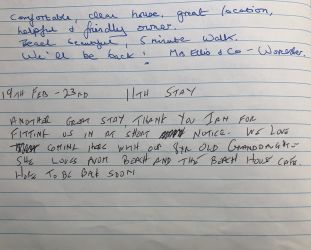 Comfortable, clean house, great location,
helpful & friendly owner.
Beach beautiful, 5 minute walk.
We'll be back! Mrs Ellis & Co - Worcester.
19TH FEB - 23RD 11TH STAY
ANOTHER GREAT STAY THANK YOU IAN FOR
FITTING US IN AT SHORT NOTICE. WE LOVE
COMING HERE WITH OUR 8YR OLD GRANDDAUGHTER
SHE LOVES BEACH AND THE BEACH HOUSE CAFE.
HOPE TO BE BACK SOON